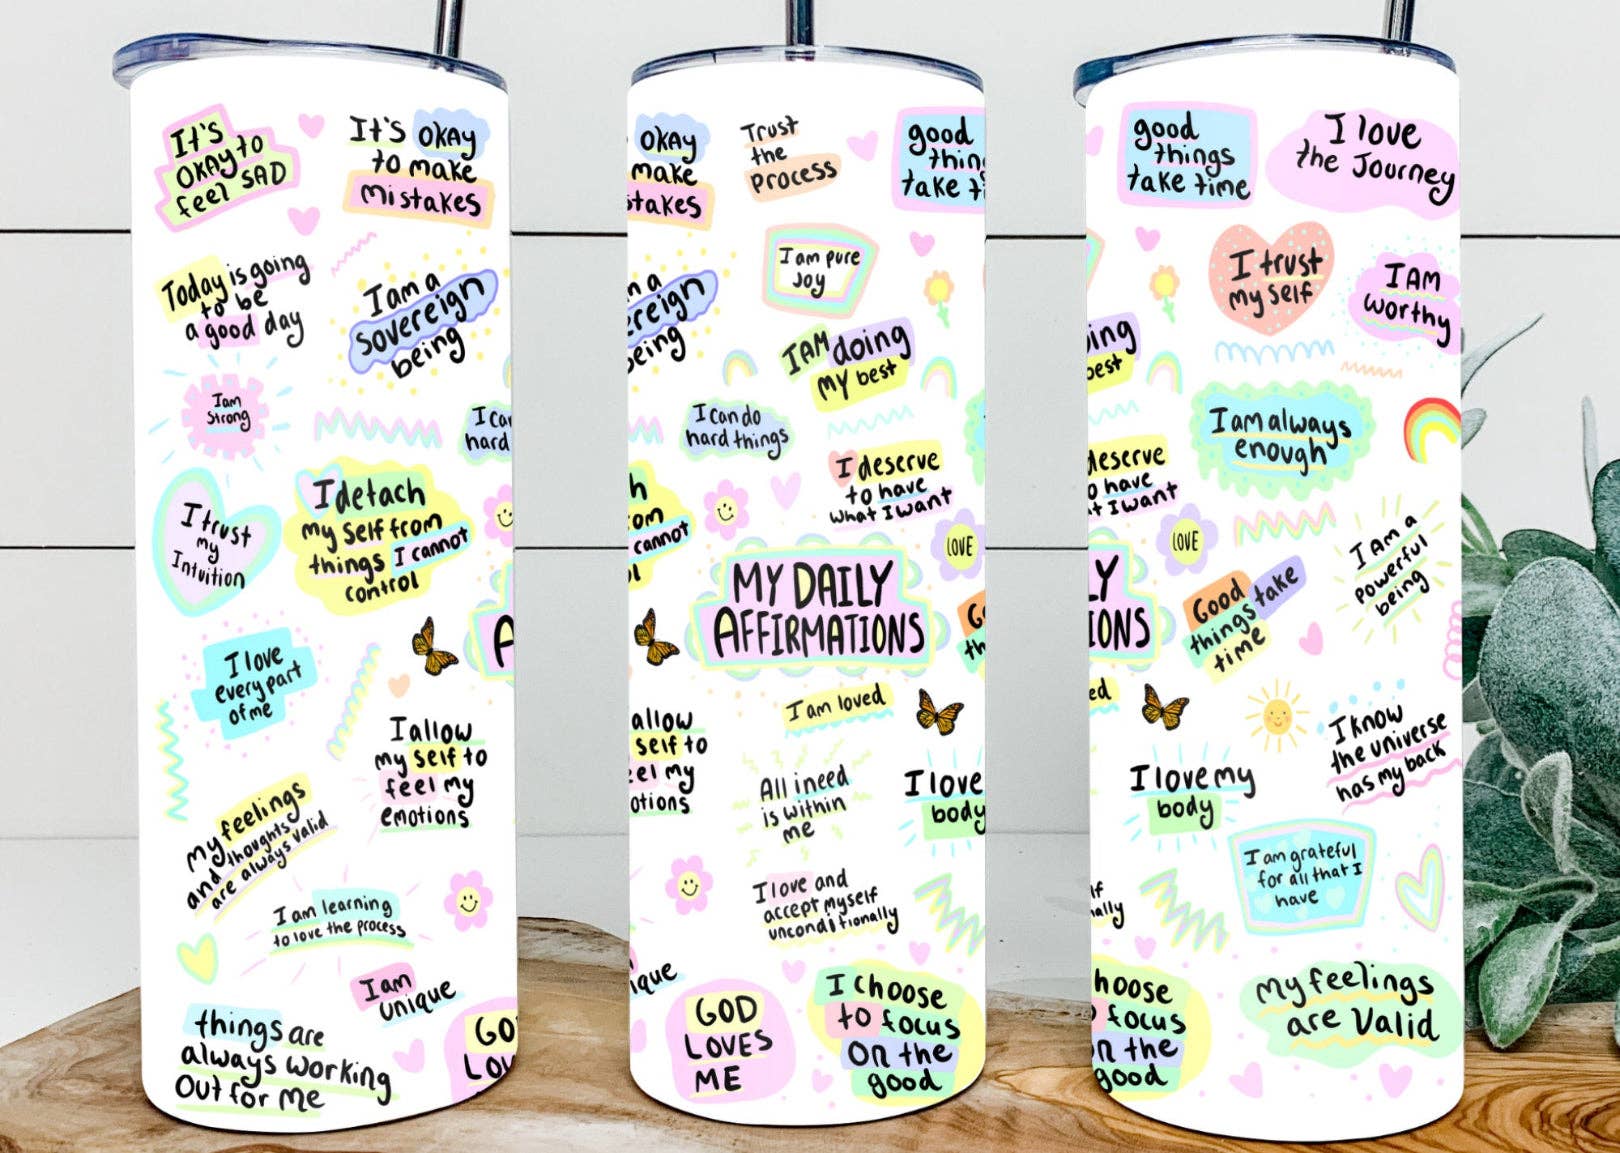 It's
OKAY to
feel SAD
It's OKAY
to make
Mistakes
Today is going
to be
a good day
I am a
sovereign
being
I am
Strong
I can
hard
I trust
my
Intuition
I detach
my self from
things I cannot
control
I love
every part
of me
I allow
my self to
feel my
emotions
My feelings
and thoughts
are always valid
I am learning
to love the process
I am
unique
things are
always working
Out for me
GO
LOV
OKAY
make
stakes
Trust
the
process
good
thin
take t
I am pure
Joy
n a
ereign
being
I AM doing
My best
I can do
hard things
I deserve
to have
what I want
h
om
cannot
ol
LOVE
MY DAILY
AFFIRMATIONS
G
th
I am loved
allow
self to
eel my
otions
All i need
is within
me
I love
body
I love and
accept myself
unconditionally
ique
GOD
LOVES
ME
I choose
to focus
On the
good
good
things
take time
I love
the Journey
I trust
my self
I AM
worthy
ing
est
I am always
enough
deserve
o have
t I want
LOVE
I AM a
powerful
being
LY
IONS
Good
things take
time
ed
I know
the universe
has my back
I love my
body
I am grateful
for all that I
have
lf
nally
hoose
focus
n the
good
My feelings
are Valid